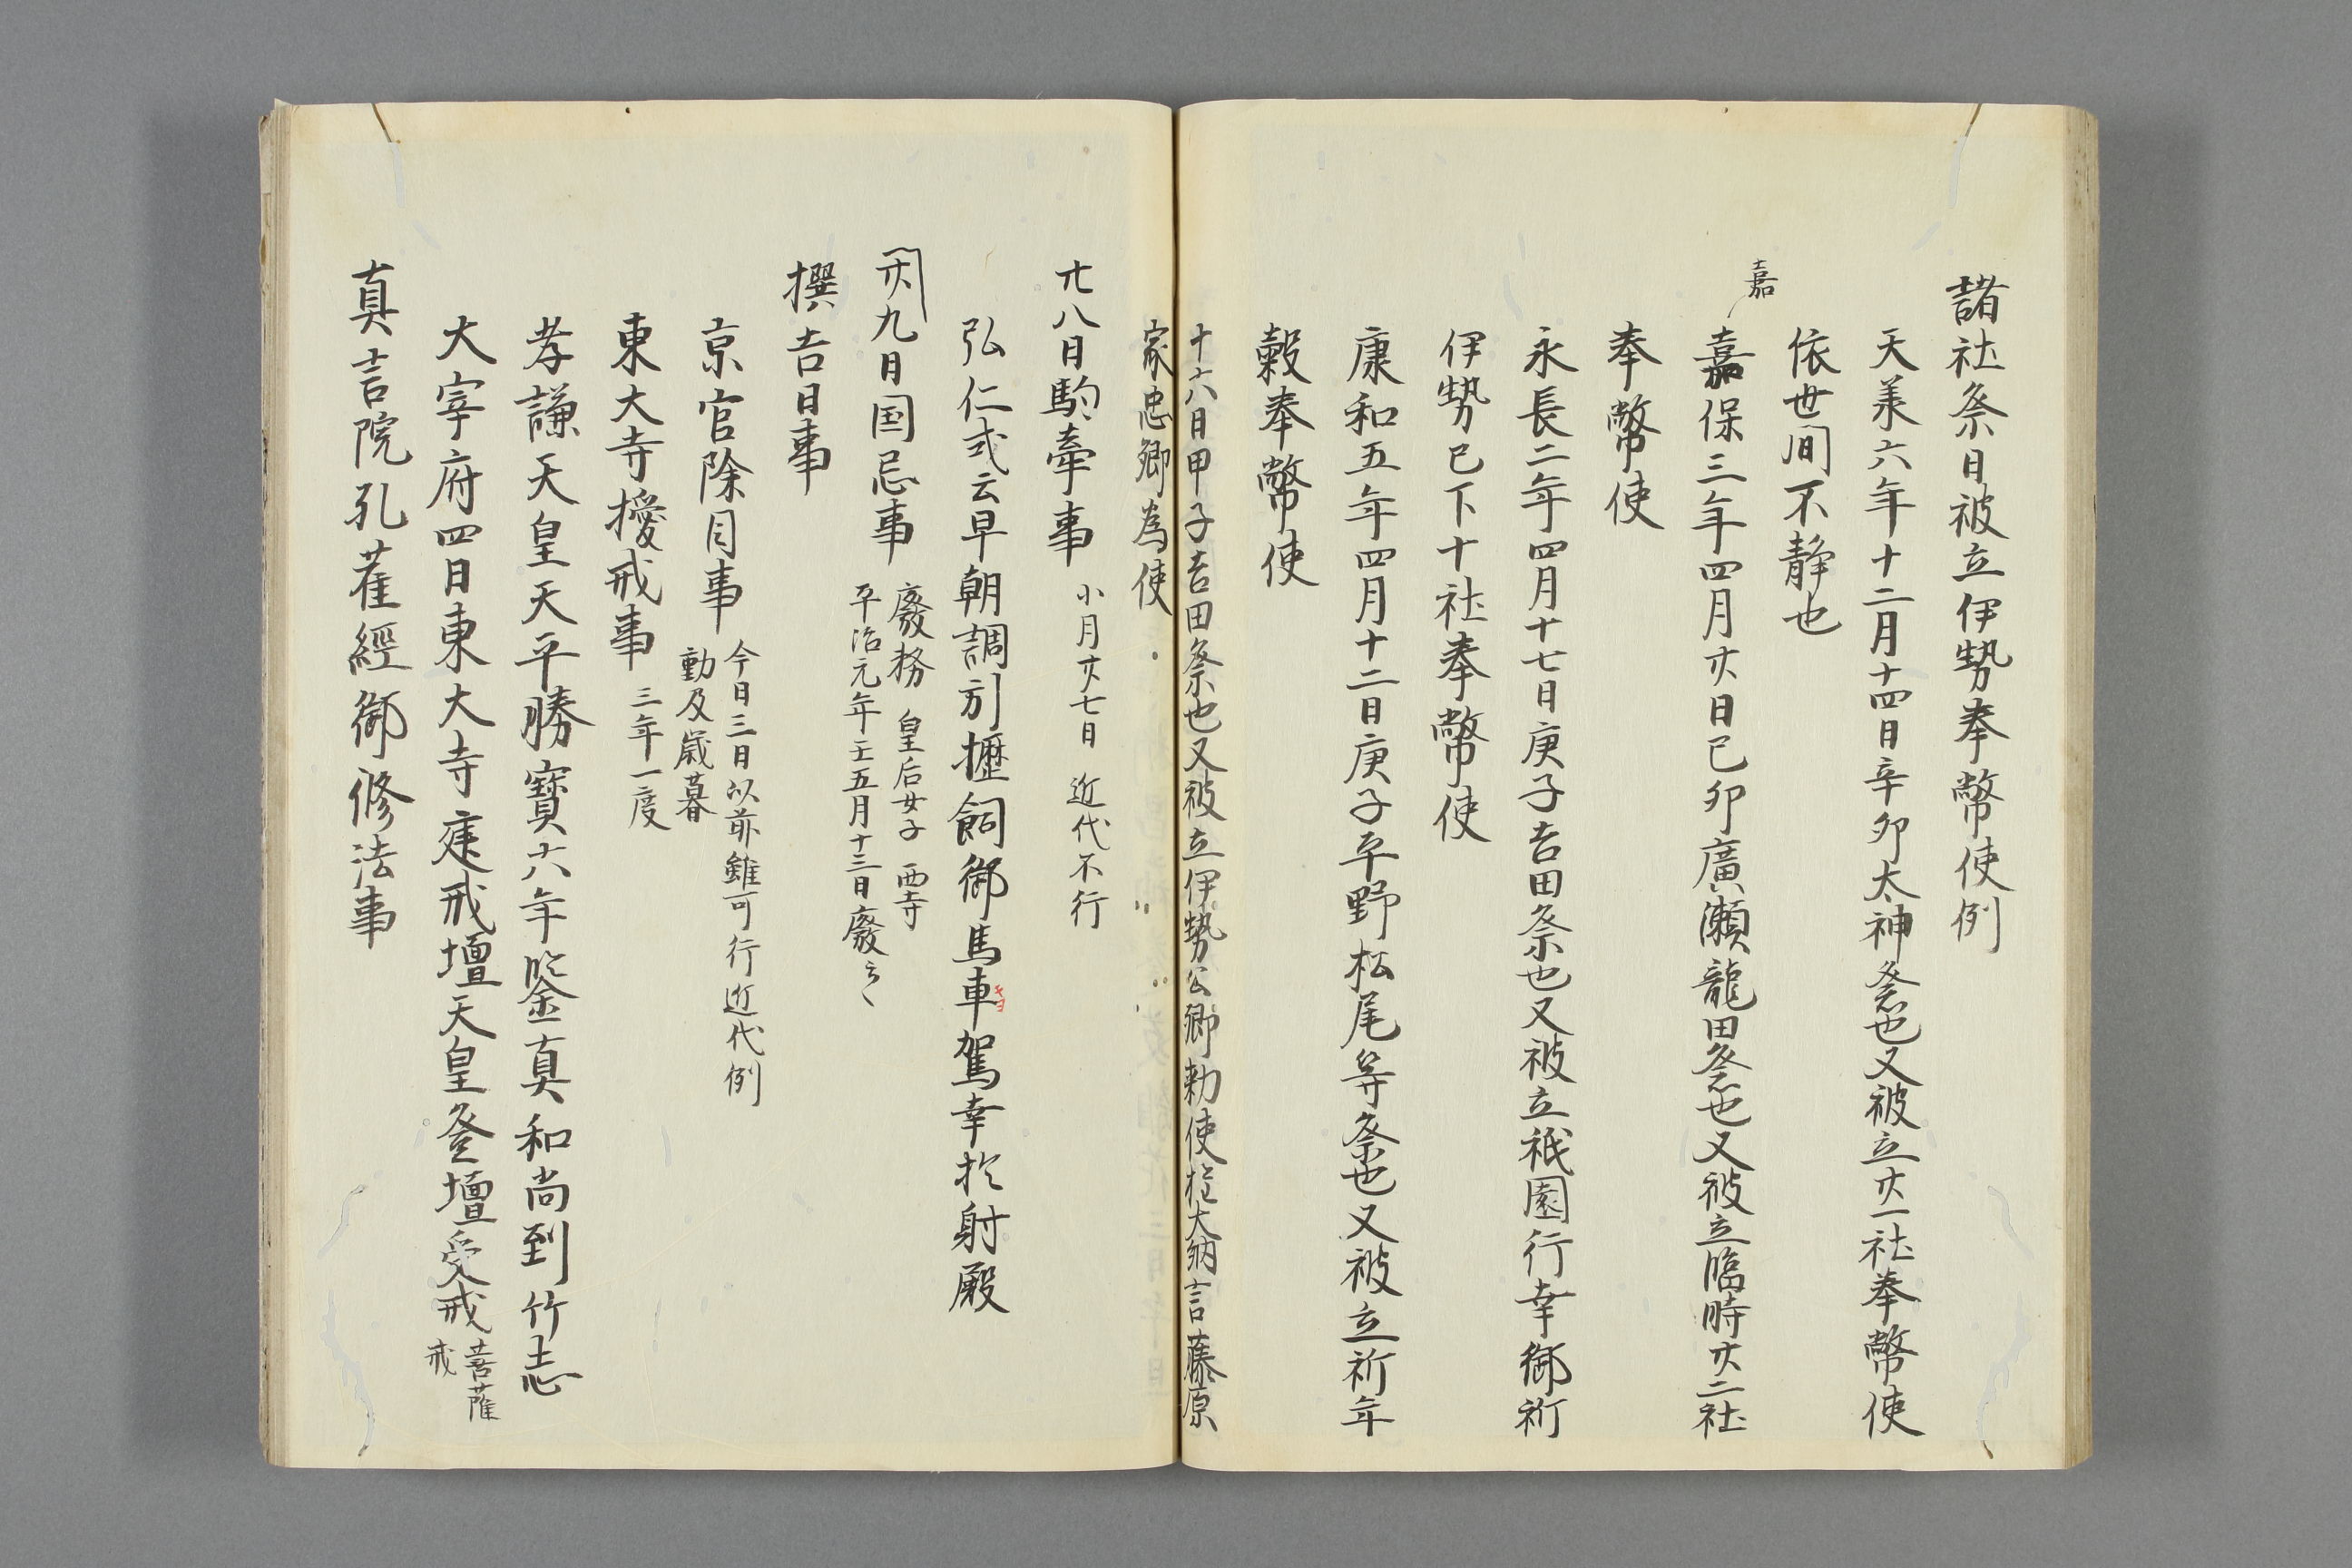 諸社祭日被立伊勢奉幣使例
天養六年十二月十四日辛卯大神祭也又被立廿一社奉幣使
依世間不静也
嘉
嘉保三年四月廿日己卯廣瀬龍田祭也又被立臨時廿二社
奉幣使
永長二年四月十七日庚子吉田祭也又被立祇園行幸御祈
伊勢已下十社奉幣使
康和五年四月十二日庚子平野松尾等祭也又被立祈年
穀奉幣使
十六日甲子吉田祭也又被立伊勢公卿勅使権大納言藤原
家忠卿為使
廿八日駒牽事 小月廿七日 近代不行
弘仁式云早朝調列攊飼御馬車駕幸於射殿
キヨ
廿九日国忌事 廢務 皇后女子 西寺
平治元年壬五月十三日廢云々
撰吉日事
京官除目事 今日三日以前雖可行近代例
動及歳暮
東大寺授戒事 三年一度
孝謙天皇天平勝寶六年鑒真和尚到竹志
大宰府四日東大寺建戒壇天皇登壇受戒 菩薩
戒
真言院孔雀經御修法事